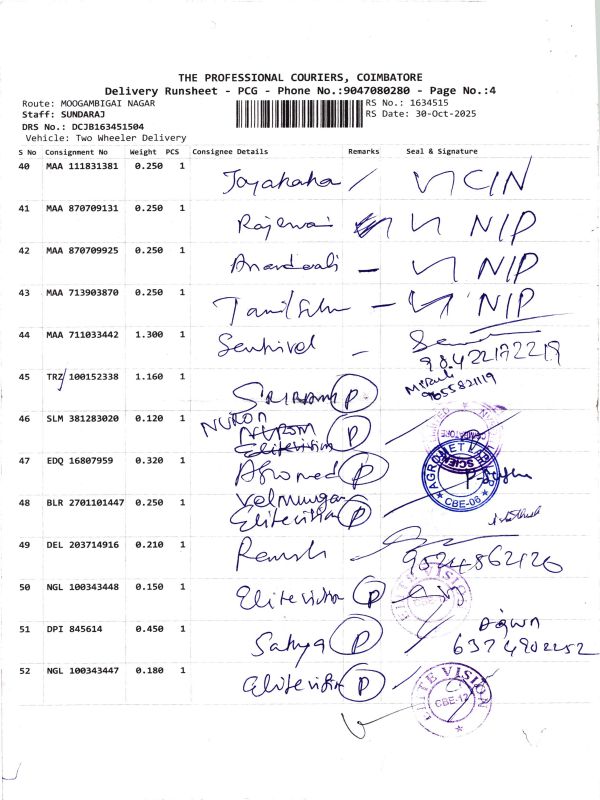 THE PROFESSIONAL COURIERS, COIMBATORE
Delivery Runsheet - PCG - Phone No.:9047080280 - Page No.:4
Route: MOOGAMBIGAI NAGAR RS No.: 1634515
Staff: SUNDARAJ RS Date: 30-Oct-2025
DRS No.: DCJB163451504
Vehicle: Two Wheeler Delivery
S No Consignment No Weight PCS Consignee Details Remarks Seal & Signature
40 MAA 111831381 0.250 1 CIN
41 MAA 870709131 0.250 1 N/P
42 MAA 870709925 0.250 1 N/P
43 MAA 713903870 0.250 1 N/P
44 MAA 711033442 1.300 1 Senthivel
45 TRZ 100152338 1.160 1 P 9655821119
46 SLM 381283020 0.120 1 NURON P
Elitevision
47 EDQ 16807959 0.320 1 Agromed P AGROMET CBE-06
48 BLR 2701101447 0.250 1 Velmurugan
Elitevision P
49 DEL 203714916 0.210 1 Ramesh
50 NGL 100343448 0.150 1 Elitevision P ELITE VISION
51 DPI 845614 0.450 1 Sathya P
6374902252
52 NGL 100343447 0.180 1 Elitevision P ELITE VISION CBE-12